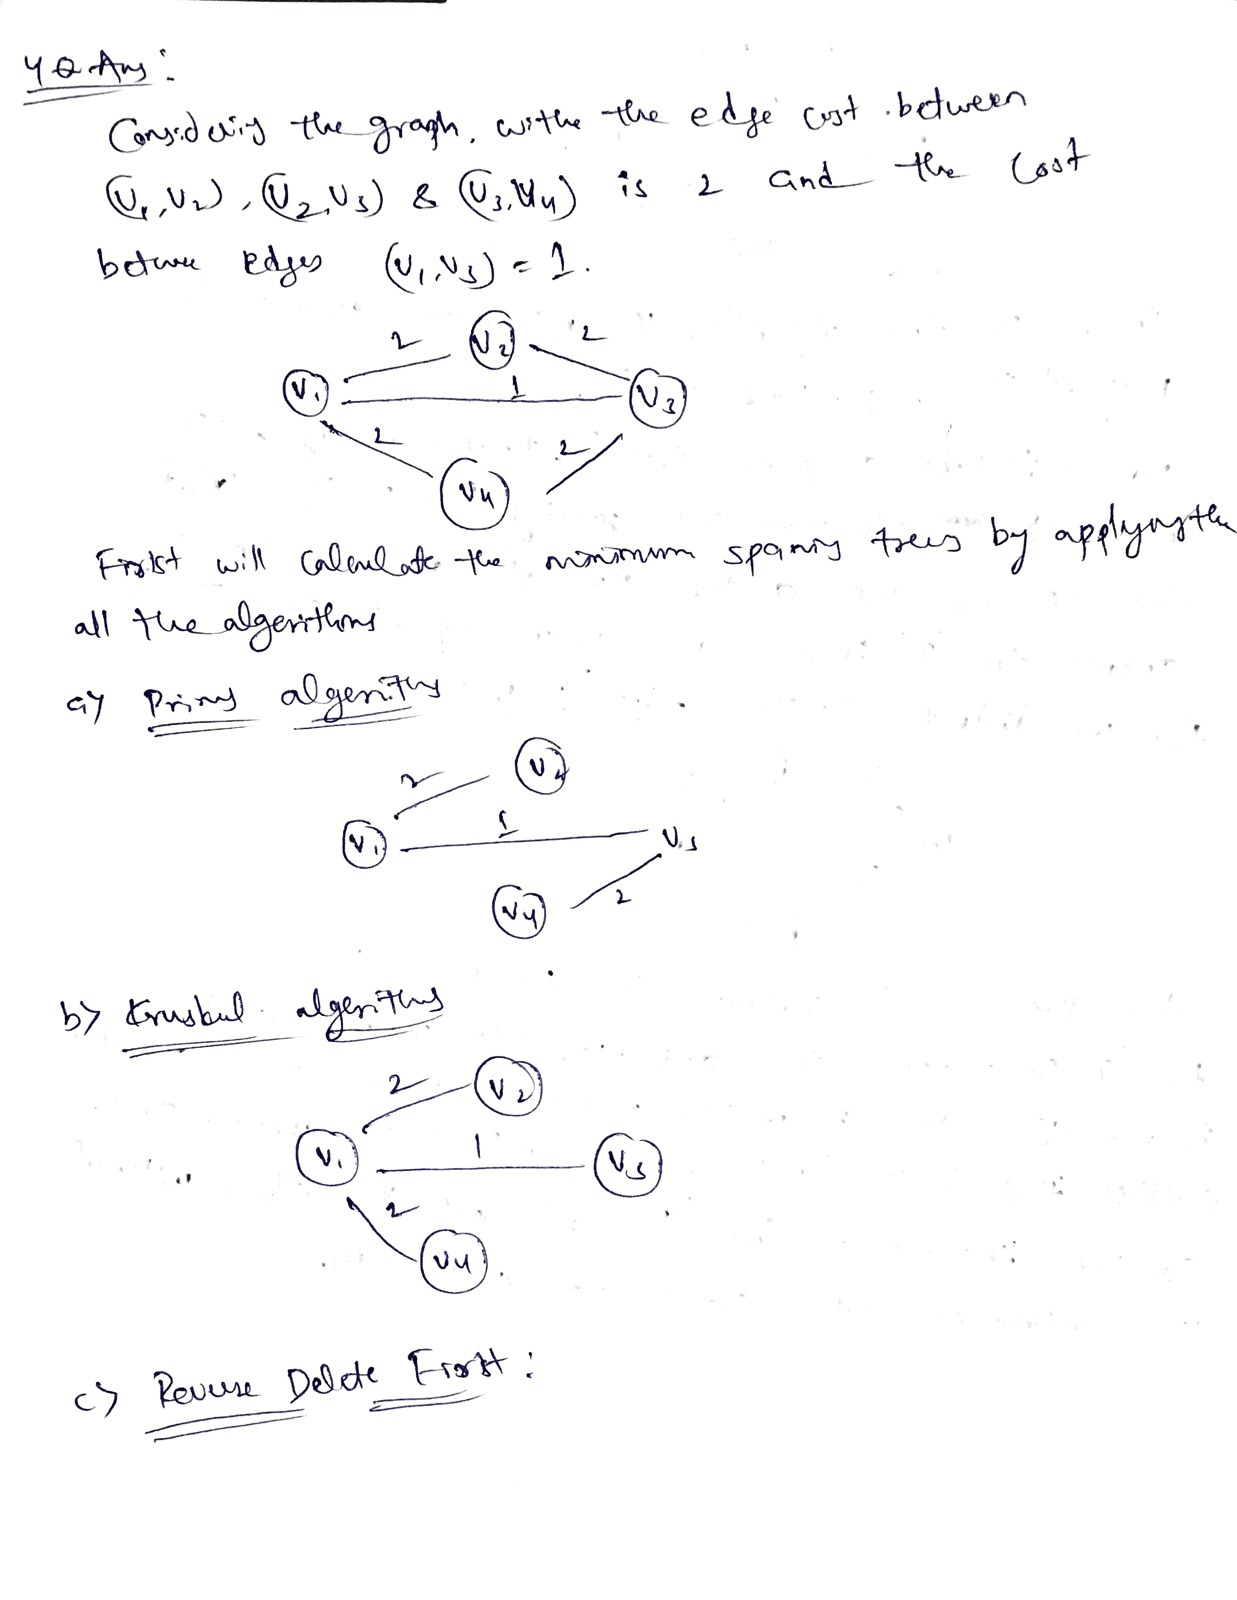 4Q Ans:
Considering the graph, withe the edge cost between
(V1,V2), (V2,V3) & (V3,V4) is 2 and the Cost
betwee edges (V1,V3) = 1.
2 V2 2
V1 1 V3
2 2
V4
First will Calculate the minimum spaning trees by applying the
all the algorithms
a) Prims algorithms
2 V2
V1 1 V3
V4 2
b) Kruskul algorithms
2 V2
V1 1 V3
2
V4
c) Reverse Delete First: